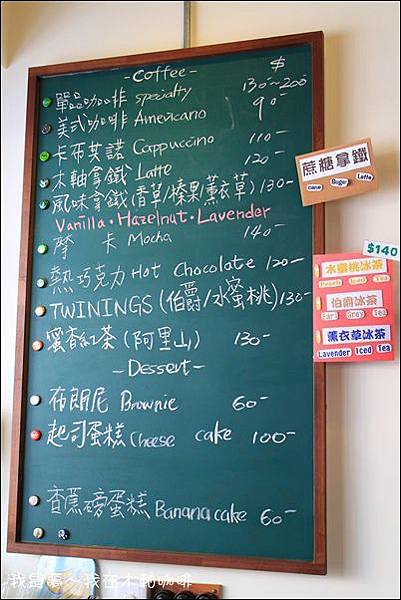 -Coffee- $
單品咖啡 specialty 130-200
美式咖啡 Americano 90-
卡布其諾 Cappuccino 110-
木軸拿鐵 Latte 120-
風味拿鐵(香草/榛果/薰衣草) 130-
Vanilla・Hazelnut・Lavender
摩 卡 Mocha 140-
熱巧克力 Hot Chocolate 120-
TWININGS (伯爵/水蜜桃) 130-
蜜香紅茶 (阿里山) 130-
-Dessert-
布朗尼 Brownie 60-
起司蛋糕 Cheese cake 100-
香蕉磅蛋糕 Banana cake 60-
蔗糖拿鐵
cane Sugar Latte
$140
水蜜桃冰茶
Peach Iced Tea
伯爵冰茶
Earl Grey Tea
薰衣草冰茶
Lavender Iced Tea